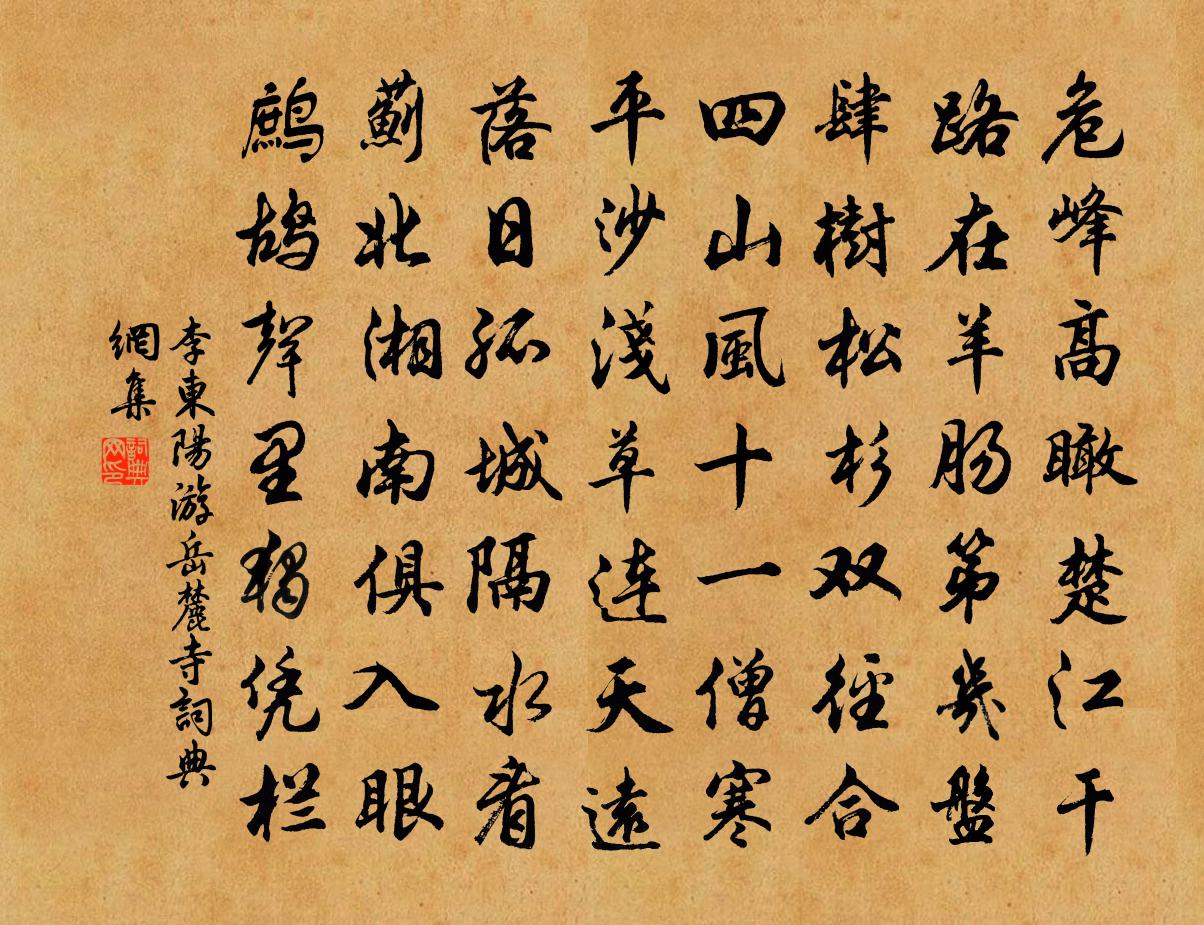 危峰高瞰楚江干
路在羊腸第幾盤
肆樹松杉双徑合
四山風十一僧寒
平沙淺草連天遠
落日孤城隔水看
薊北湘南俱入眼
鷓鴣聲里獨凭栏
李東陽游岳麓寺詞典
網集
詞典网印